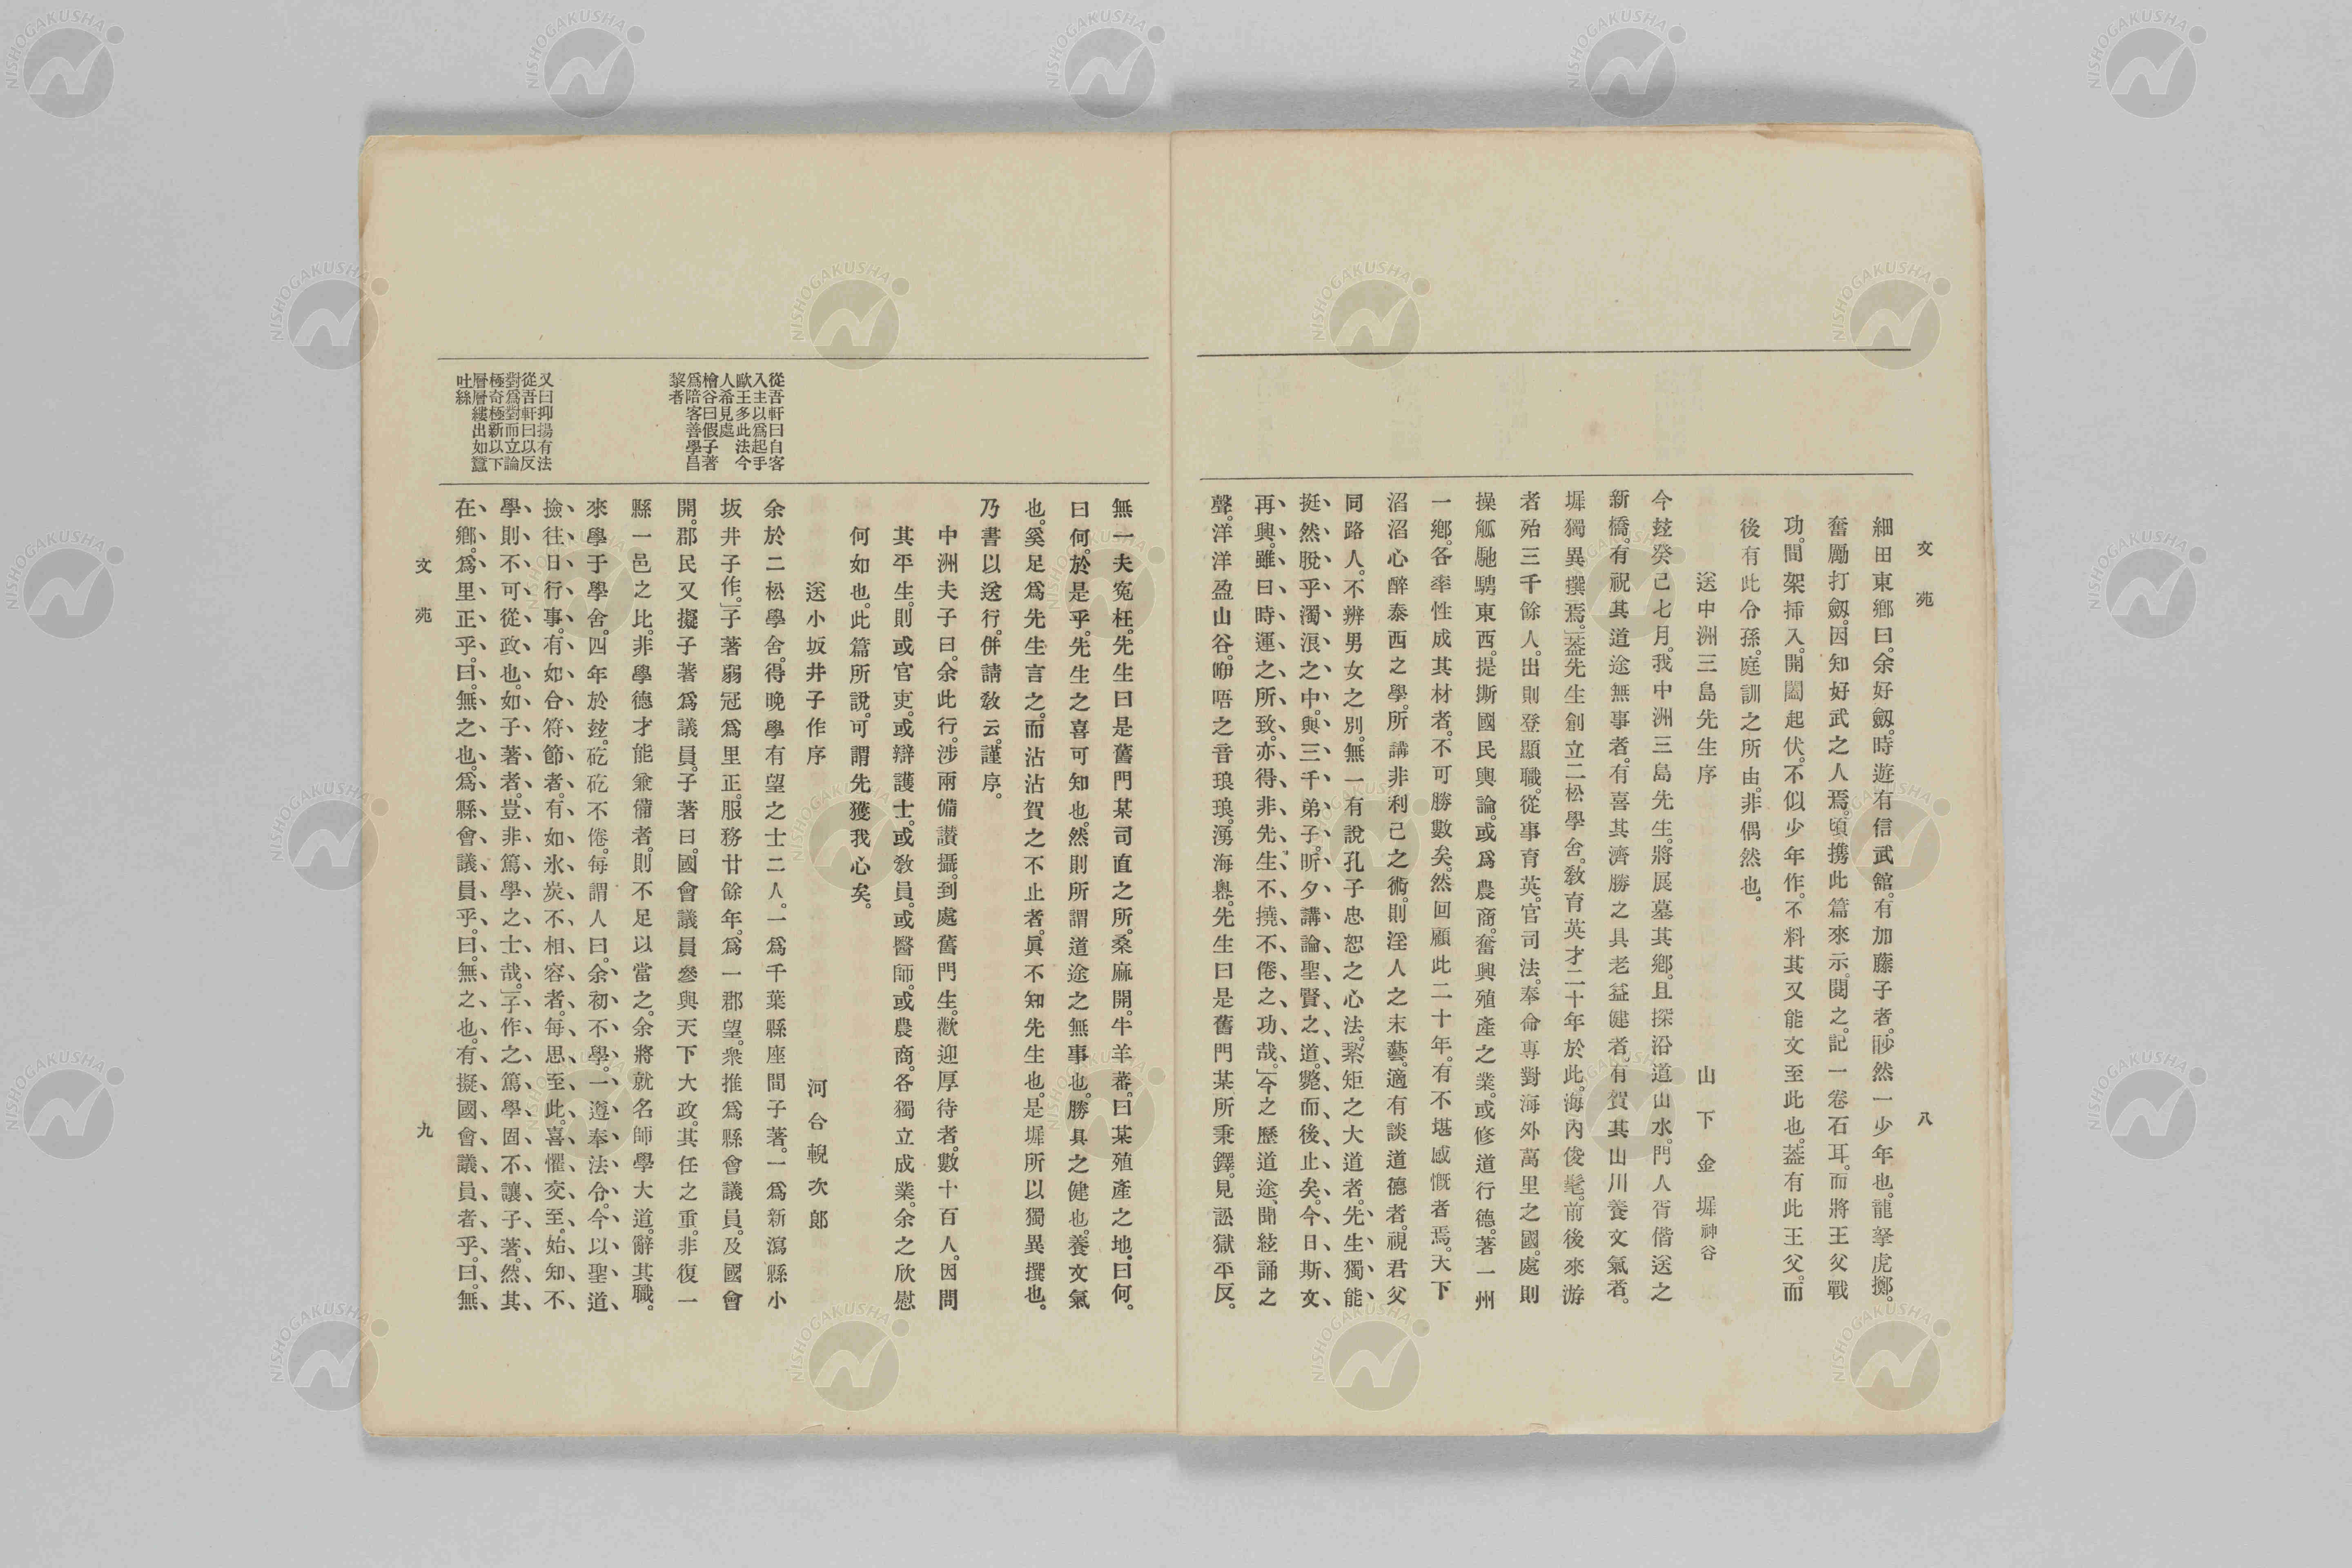 文苑
八
細田東鄕曰。余好劔。時遊有信武舘。有加藤子者。眇然一少年也。龍拏虎擲。
奮勵打劔。因知好武之人焉。頃携此篇來示。閱之。記一卷石耳。而將王父戰
功。間架揷入。開闔起伏。不似少年作。不料其又能文至此也。蓋有此王父。而
後有此令孫。庭訓之所由。非偶然也。
送中洲三島先生序
山下金墀神谷
今玆癸己七月。我中洲三島先生。將展墓其鄕。且探沿道山水。門人胥偕送之
新橋。有祝其道途無事者。有喜其濟勝之具老益健者。有賀其山川養文氣者。
墀獨異撰焉。」蓋先生創立二松學舍。敎育英才二十年於此。海內俊髦。前後來游
者殆三千餘人。出則登顯職。從事育英。官司法。奉命專對海外萬里之國。處則
操觚馳騁東西。提撕國民輿論。或爲農商。奮興殖產之業。或修道行德。著一州
一鄕。各率性成其材者。不可勝數矣。然回顧此二十年。有不堪感慨者焉。天下
滔滔心醉泰西之學。所講非利己之術。則淫人之末藝。適有談道德者。視君父
同路人。不辨男女之別。無一有說孔子忠恕之心法。絜矩之大道者。先生獨能
挺然脫乎濁浪之中。與三千弟子。昕夕講論聖賢之道。斃而後止矣。今日斯文
再興。雖曰時運之所致。亦得非先生不撓不倦之功哉。」今之歷道途、聞絃誦之
聲。洋洋盈山谷。咿唔之音琅琅。湧海嶴。先生曰是舊門某所秉鐸。見訟獄平反。
無一夫寃枉。先生曰是舊門某司直之所。桑麻開。牛羊蕃。曰某殖產之地。曰何。
曰何。於是乎。先生之喜可知也。然則所謂道途之無事也。勝具之健也。養文氣
也。奚足爲先生言之。而沾沾賀之不止者。眞不知先生也。是墀所以獨異撰也。
乃書以送行。併請敎云。謹序。
中洲夫子曰。余此行。涉兩備讃攝。到處舊門生。歡迎厚待者。數十百人。因問
其平生。則或官吏。或辯護士。或敎員。或醫師。或農商。各獨立成業。余之欣慰
何如也。此篇所說。可謂先獲我心矣。
送小坂井子作序
河合輗次郞
余於二松學舍。得晚學有望之士二人。一爲千葉縣座間子著。一爲新瀉縣小
坂井子作。」子著弱冠爲里正。服務廿餘年。爲一郡望。衆推爲縣會議員。及國會
開。郡民又擬子著爲議員。子著曰。國會議員參與天下大政。其任之重。非復一
縣一邑之比。非學德才能兼備者。則不足以當之。余將就名師學大道。辭其職。
來學于學舍。四年於玆。矻矻不倦。每謂人曰。余初不學。一遵奉法令。今以聖道
撿往日行事。有如合符節者。有如氷炭不相容者。每思至此。喜懼交至。始知不
學則不可從政也。如子著者。豈非篤學之士哉。」子作之篤學。固不讓子著。然其
在鄕。爲里正乎。曰。無之也。爲縣會議員乎。曰。無之也。有擬國會議員者乎。曰。無
從吾軒曰自客
入主以爲起手
歐王多此法今
人希見處
檜谷曰假子著
爲陪客善學昌
黎者
又曰抑揚有法
從吾軒曰以反
對爲對而立論
極奇極新以下
層層縷出如蠶
吐絲
文苑
九